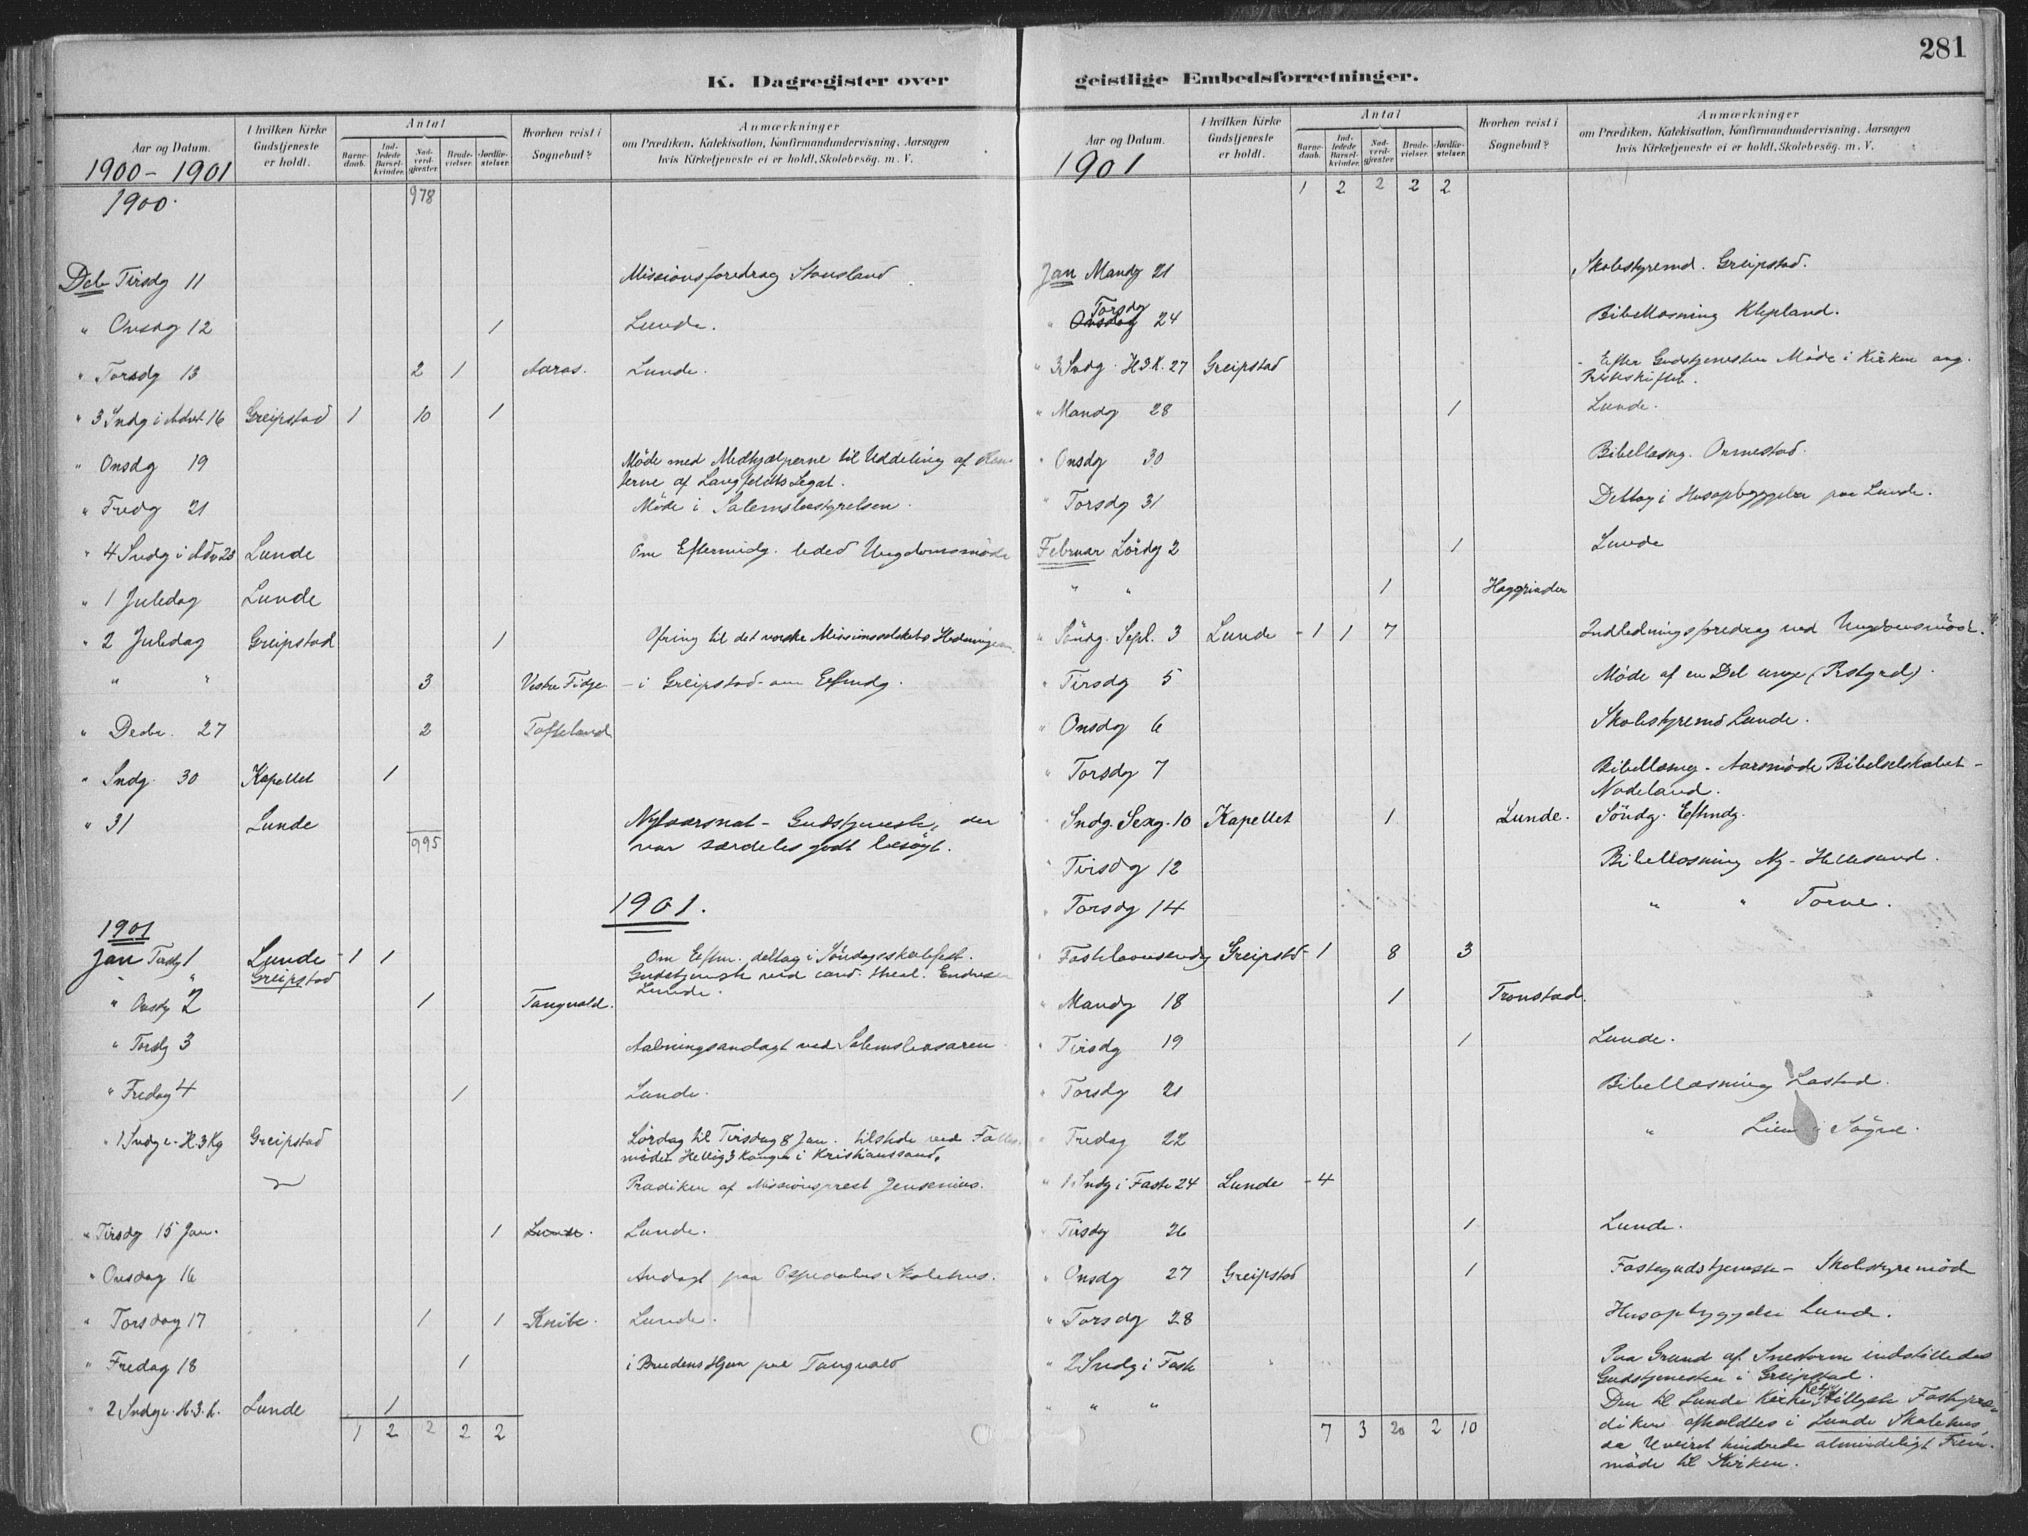 281
K. Dagregister over geistlige Embedsforretninger.
Aar og Datum.
I hvilken Kirke Gudstjeneste er holdt.
Antal
Barnedaab.
Indledede Barselkvinder.
Nadverdgjester.
Brudevielser.
Jordfæstelser.
Hvorhen reist i Sognebud?
Anmærkninger
om Prædiken, Katekisation, Konfirmandundervisning, Aarsagen
hvis Kirketjeneste ei er holdt, Skolebesøg. m. V.
1900 - 1901
1900. 978
Deb Tirsdg 11 Missionsforedrag Stousland
" Onsdg 12 1 Lunde.
" Torsdg 13 2 1 Aaros. Lunde.
" 3 Sndg i Advt 16 Greipstad 1 10 1
" Onsdg 19 Møde med Medhjælperne til Uddeling af
terne af Langfeldts Legat.
" Fredg 21 Møde i Salemsbestyrelsen.
" 4 Sndg i Adv 23 Lunde Om Eftermidg. leded Ungdomsmøde
" 1 Juledag Lunde
" 2 Juledag Greipstad 1 Ofring til det norske Missionsselskabs
" " 3 Vestre Tidje - i Greipstad - om Eftmdg.
" Decbr. 27 2 Tofteland
" Sndg. 30 Kapellet 1
" 31 Lunde Nytaarsnat - Gudstjeneste, der
995 var særdeles godt besøgt.
1901.
1901
Jan Tirsdg 1 Lunde - 1 1 Om Eftm. deltog i Søndagsskolefest.
" " Greipstad Gudstjeneste ved cand. theol. Endresen
Lunde.
" Onsdg 2 1 Tangvald.
" Torsdg 3 Aabningsandagt ved Salemsbasaren.
" Fredag 4 1 Lunde.
" 1 Sndg e. H. 3 Kg Greipstad Lørdag til Tirsdag 8 Jan. tilstede ved
mødet Hellig 3 Konger i Kristianssand.
Prædiken af Missionsprest Jensenius.
" Tirsdg 15 Jan. 1 Lunde. Lunde.
" Onsdag 16 Andagt paa Ospedalens Skolehus.
" Torsdag 17 1 1 Knibe. Lunde.
" Fredag 18 1 i Brudens Hjem paa Tangvald
" 2 Sndg e. H. 3. K. Lunde 1
1 2 2 2 2
Aar og Datum.
I hvilken Kirke Gudstjeneste er holdt.
Antal
Barnedaab.
Indledede Barselkvinder.
Nadverdgjester.
Brudevielser.
Jordfæstelser.
Hvorhen reist i Sognebud?
Anmærkninger
om Prædiken, Katekisation, Konfirmandundervisning, Aarsagen
hvis Kirketjeneste ei er holdt, Skolebesøg. m. V.
1901
1 2 2 2 2
Jan Mandg 21 Skolestyremd. Greipstad.
" Onsdag Torsdg 24 Bibellæsning Klepland.
" 3 Sndg. H3K. 27 Greipstad - Efter Gudstjenesten Møde i Kirken ang.
" Mandg 28 1 Lunde.
" Onsdg 30 Bibellæsng. Ormestad.
" Torsdg 31 Deltog i Husopbyggelse paa Lunde.
Februar Lørdg 2 1 Lunde
" " 1
" Søndg. Sept. 3 Lunde - 1 1 7 Indledningsforedrag ved Ungdomsmøde.
" Tirsdg 5 Møde af en Del unge (Prstgrd).
" Onsdg 6 Skolestyremd Lunde.
" Torsdg 7 Bibellæsng - Aarsmøde Bibelselskabet -
Nodeland.
" Sndg. Sexg. 10 Kapellet 1 Lunde. Søndg. Eftmdg.
" Tirsdg 12 Bibellæsning Ny-Hellesund.
" Torsdg 14 " " Torve.
" Fastelavnssndg Greipstd - 1 8 3
" Mandg 18 1 Tronstad.
" Tirsdg 19 1 Lunde.
" Torsdg 21 Bibellæsning Lastad.
" Fredag 22 " Lien i Søgne.
" 1 Sndg i Faste 24 Lunde - 4
" Tirsdg 26 1 Lunde.
" Onsdg 27 Greipstad 1 Fastegudstjeneste - Skolestyremøde
" Torsdg 28 Husopbyggelse Lunde.
" 2 Sndg i Faste " Paa Grund af Snestorm indstilledes
Gudstjenesten i Greipstad.
" " " Den til Lunde Kirke Kl 4 tillyste Fastepræ-
diken afholdtes i Lunde Skolehus
da Uveiret hindrede almindeligt Frem-
møde til Kirken.
7 3 20 2 10